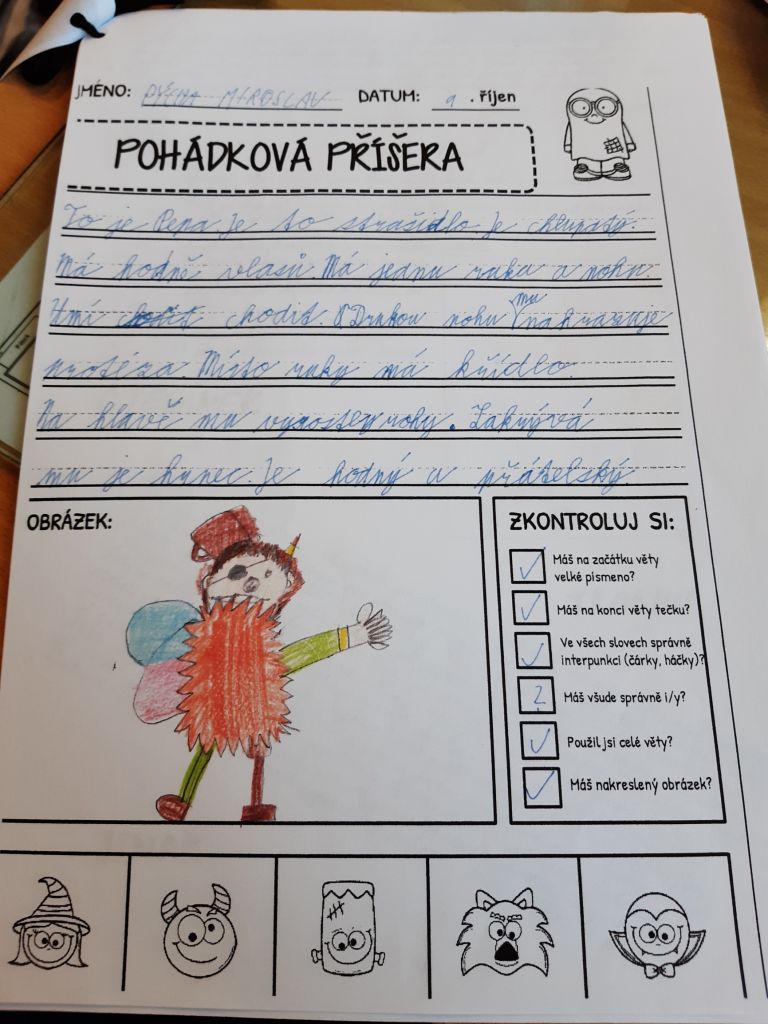 JMÉNO: PÝCHA MIROSLAV DATUM: 9 . říjen
POHÁDKOVÁ PŘÍŠERA
To je Pepa. Je to strašidlo. Je chlupatý.
Má hodně vlasů. Má jednu ruku a nohu.
Umí chodit. Druhou nohu mu nahrazuje
protéza. Místo ruky má křídlo.
Na hlavě mu vyrostly rohy. Zakrývá
mu je hrnec. Je hodný a přátelský
OBRÁZEK:
ZKONTROLUJ SI:
Máš na začátku věty
velké písmeno?
Máš na konci věty tečku?
Ve všech slovech správně
interpunkci (čárky, háčky)?
? Máš všude správně i/y?
Použil jsi celé věty?
Máš nakreslený obrázek?